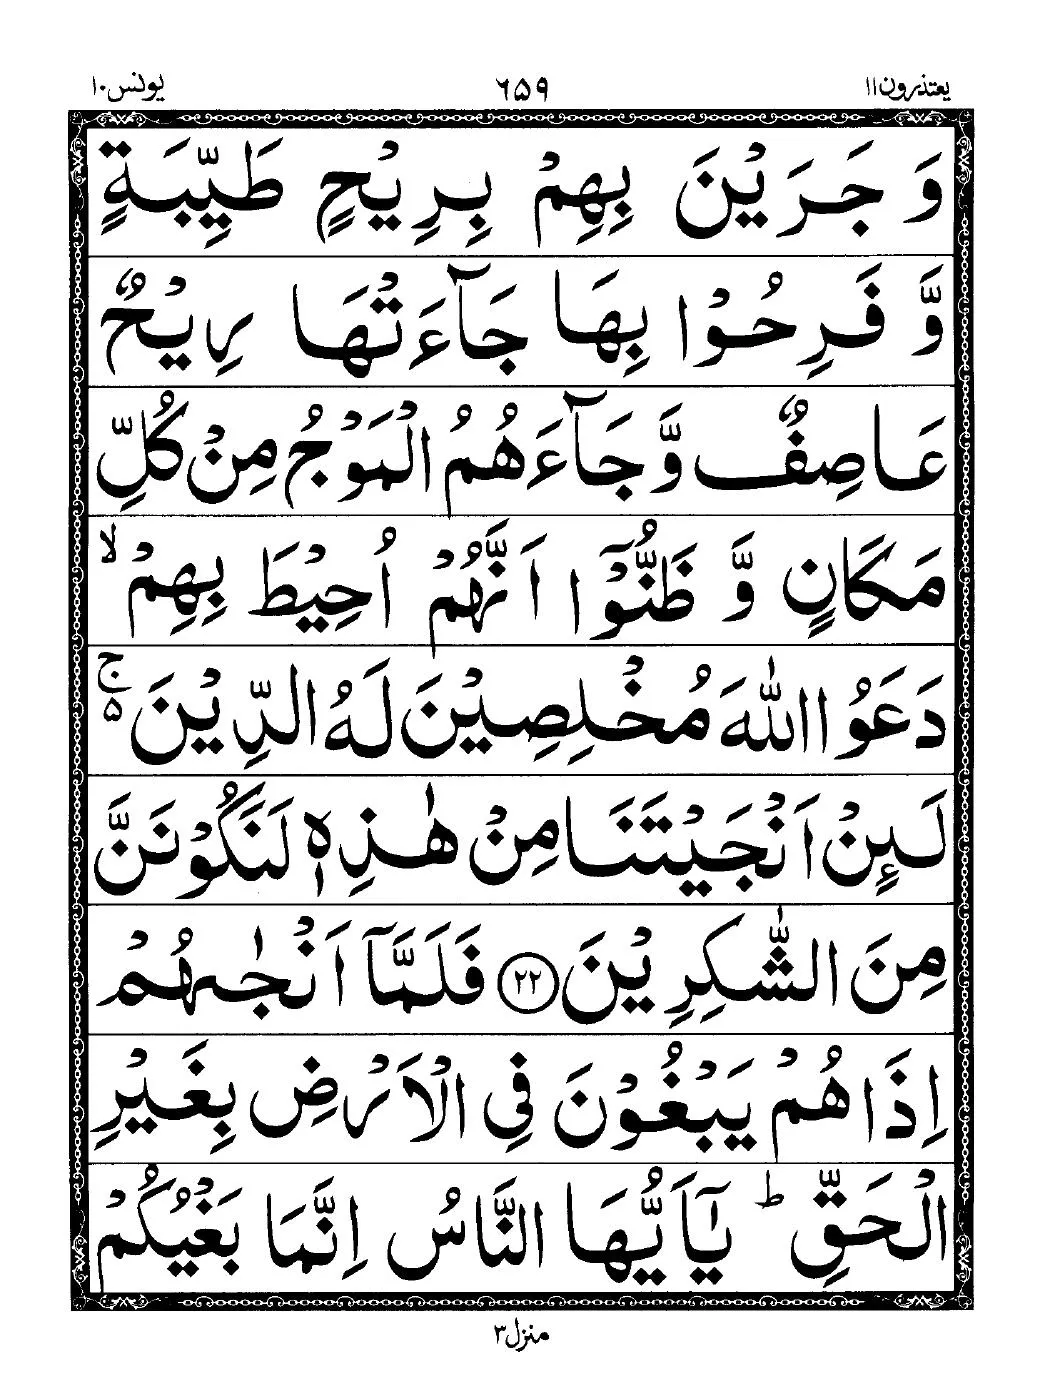 یعتذرون۱۱ ۶۵۹ یونس۱۰
وَ جَرَیْنَ بِهِمْ بِرِیْحٍ طَیِّبَةٍ
وَّ فَرِحُوْا بِهَا جَآءَتْهَا رِیْحٌ
عَاصِفٌ وَّ جَآءَهُمُ الْمَوْجُ مِنْ كُلِّ
مَكَانٍ وَّ ظَنُّوْۤا اَنَّهُمْ اُحِیْطَ بِهِمْ ۙ
دَعَوُا اللّٰهَ مُخْلِصِیْنَ لَهُ الدِّیْنَ ۚ۬
لَىِٕنْ اَنْجَیْتَنَا مِنْ هٰذِهٖ لَنَكُوْنَنَّ
مِنَ الشّٰكِرِیْنَ ۲۲ فَلَمَّاۤ اَنْجٰىهُمْ
اِذَا هُمْ یَبْغُوْنَ فِی الْاَرْضِ بِغَیْرِ
الْحَقِّ ؕ یٰۤاَیُّهَا النَّاسُ اِنَّمَا بَغْیُكُمْ
منزل۳